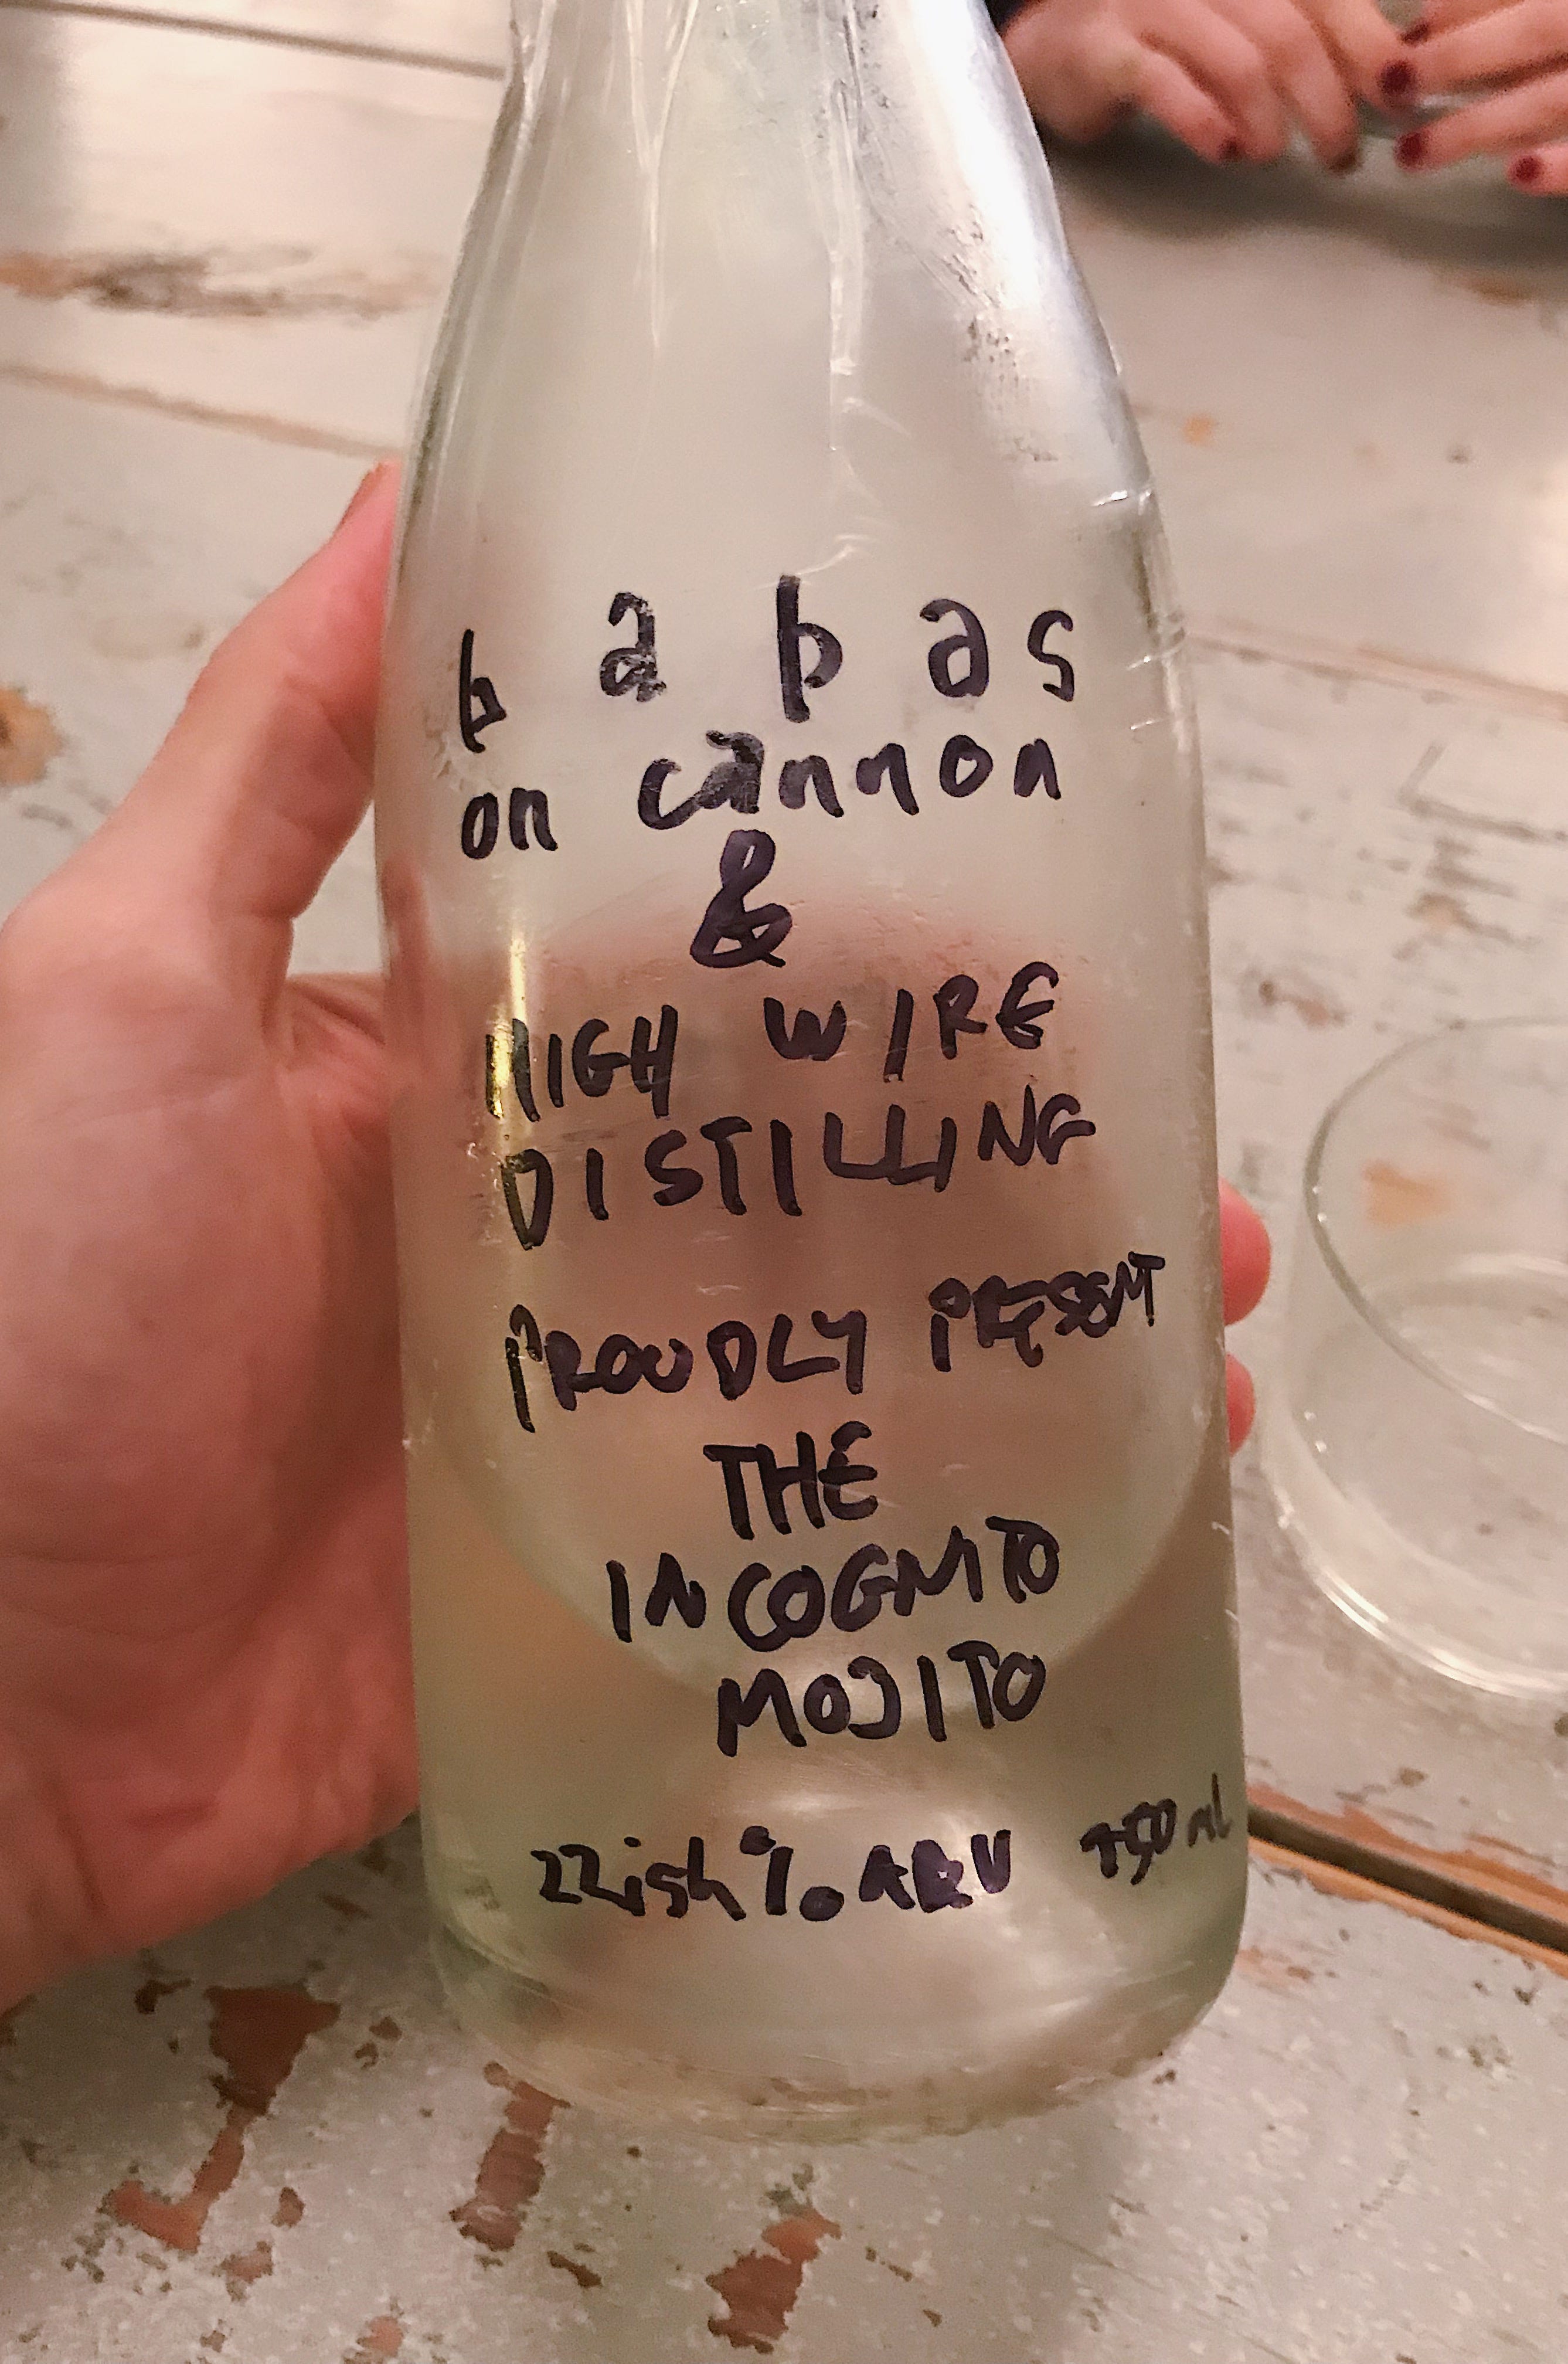 babas
on cannon
&
HIGH WIRE
DISTILLING
PROUDLY PRESENT
THE
INCOGNITO
MOJITO
22ish % ABV 750 ml